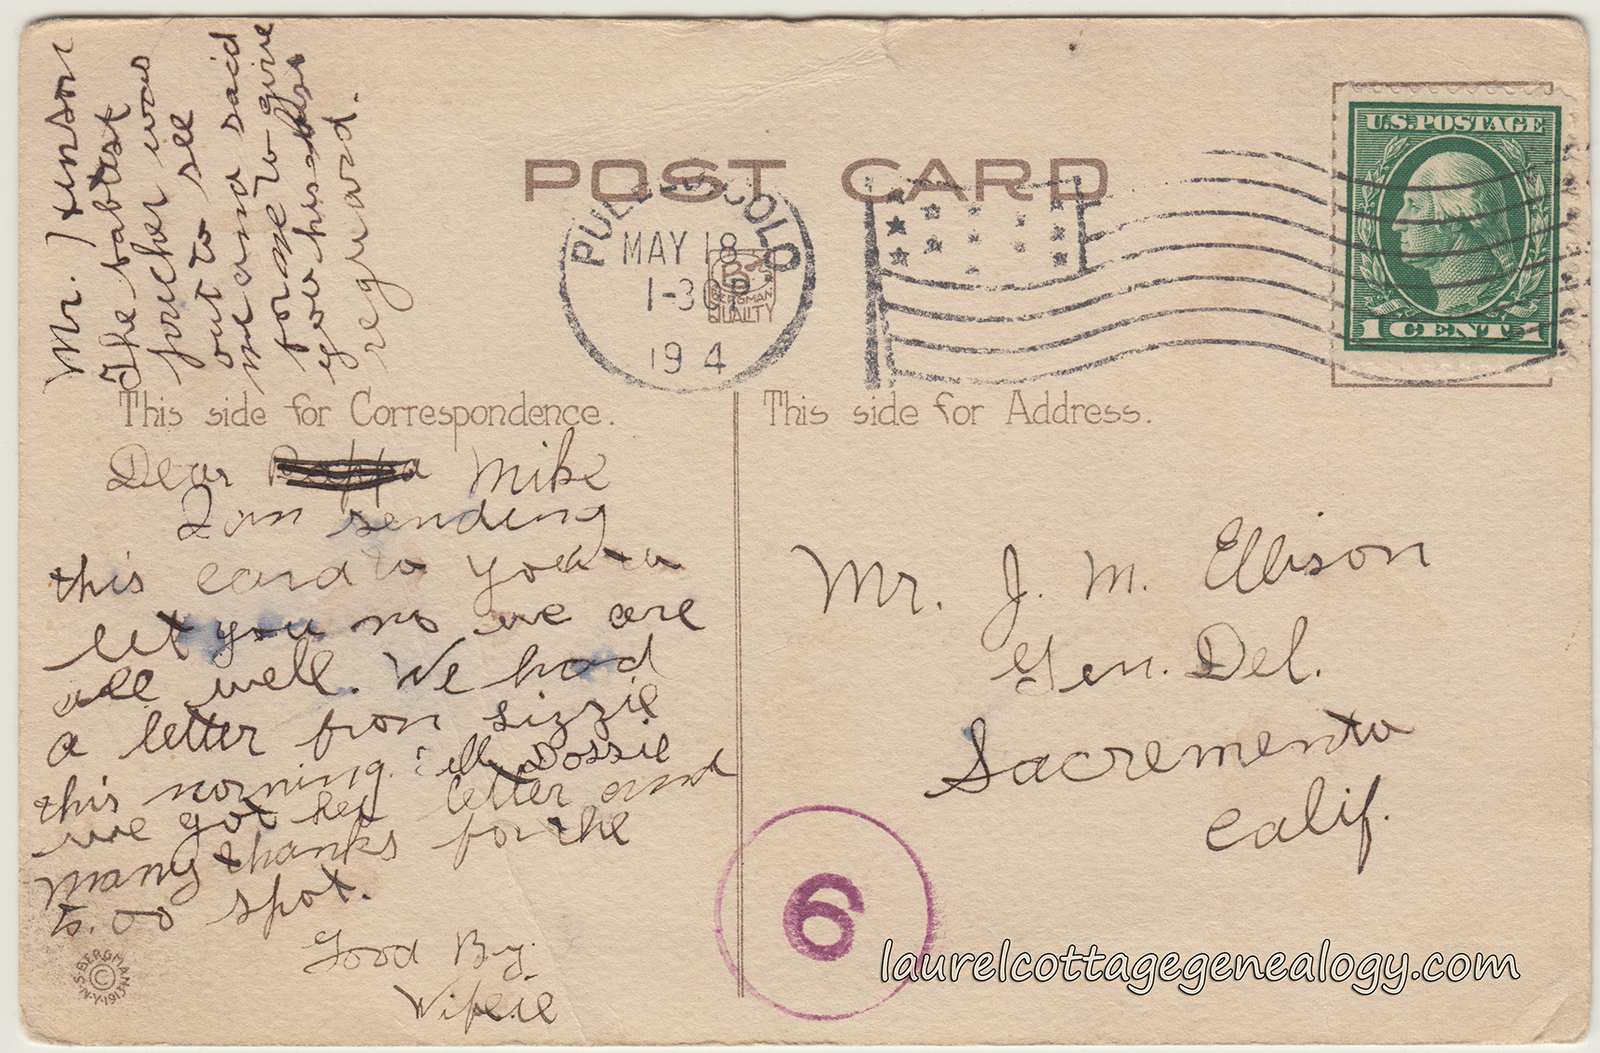 Mr. Hinson
The bablist
preacher was
out to see
me and said
for me to give
you his
reguard.
POST CARD
COLO
MAY 18
1-30 P
BERGMAN
QUALITY
19 4
U.S. POSTAGE
1 CENT 1
This side for Correspondence.
This side for Address.
Dear Pappa Mike
I am sending
this card to you to
let you no we are
all well. We had
a letter from Lizzie
this morning. Tell Dossie
we got her letter and
many thanks for the
5.00 spot.
Good By.
Wifie
Mr. J. M. Ellison
Gen. Del.
Sacremento
Calif.
6
S. BERGMAN N.Y. 1913
©
laurelcottagegenealogy.com